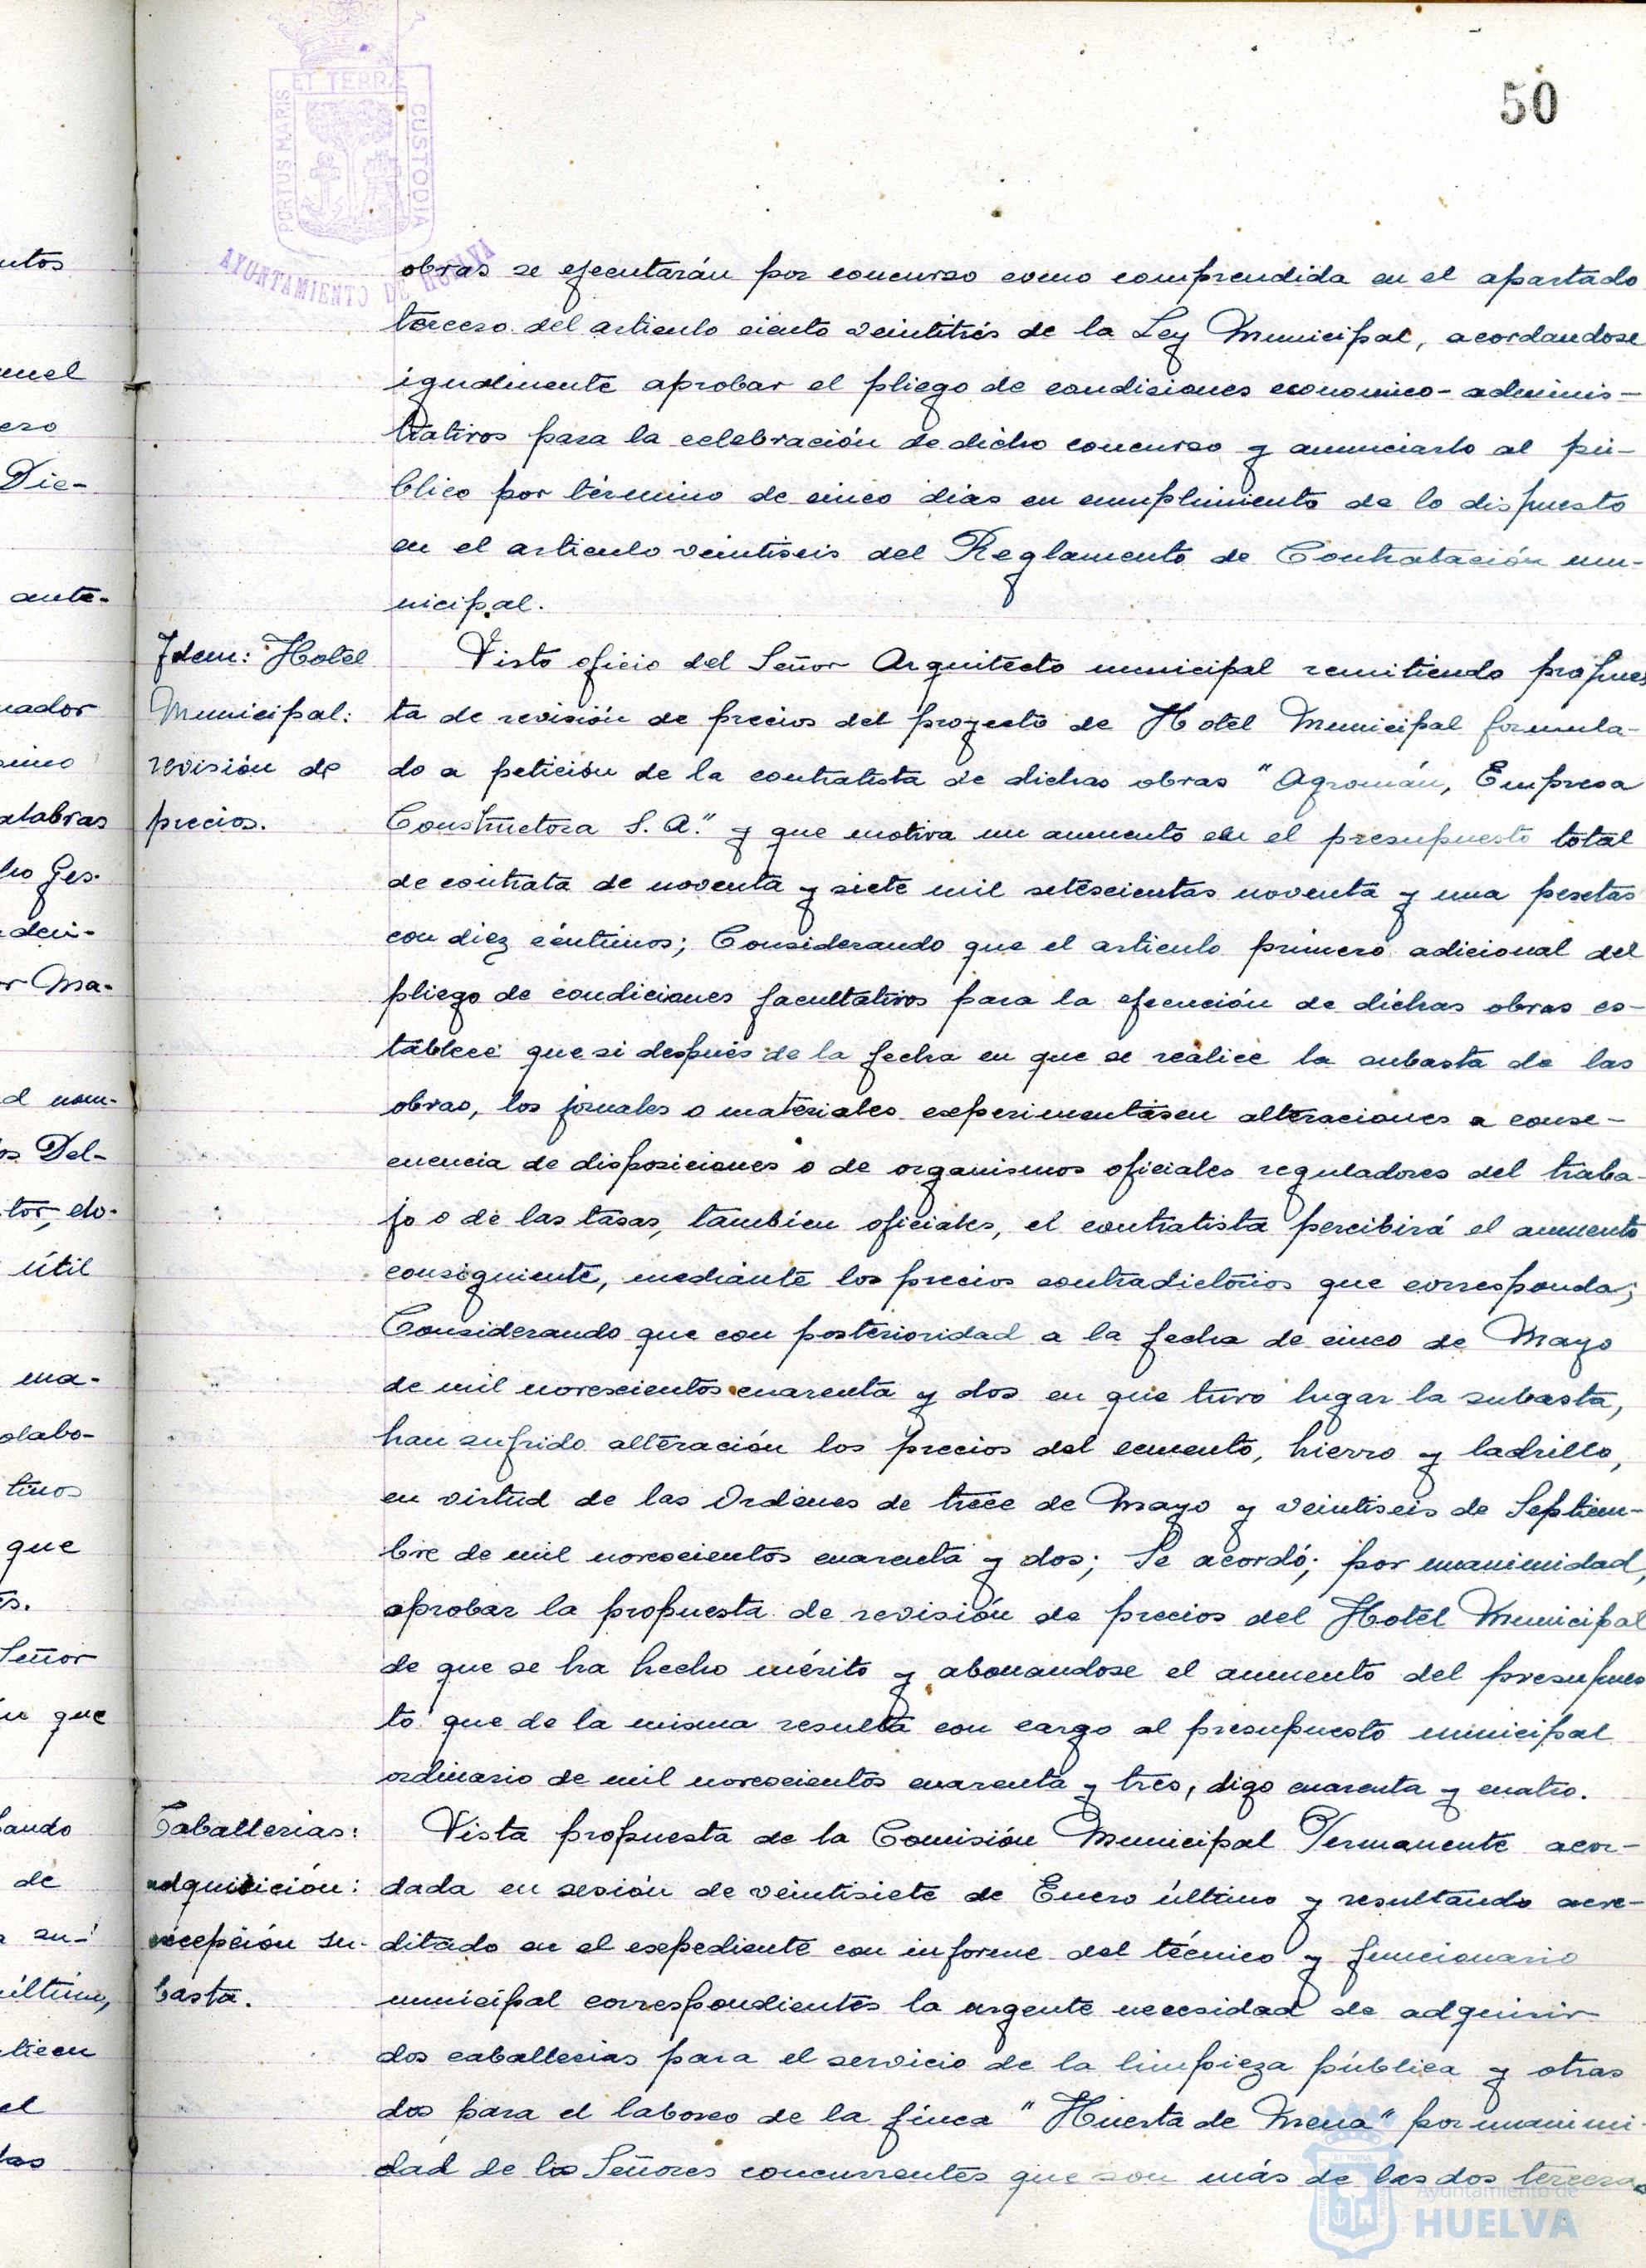 50
ET TERRÆ
PORTUS MARIS
CUSTODIA
AYUNTAMIENTO DE HUELVA
obras se ejecutarán por concurso como comprendida en el apartado
tercero del articulo ciento veintitrés de la Ley Municipal, acordandose
igualmente aprobar el pliego de condiciones economico-adminis-
trativos para la celebración de dicho concurso y anunciarlo al pú-
blico por término de cinco dias en cumplimiento de lo dispuesto
en el articulo veintiseis del Reglamento de Contratación mu-
nicipal.
Idem: Hotel
Municipal:
revisión de
precios.
Visto oficio del Señor Arquitecto municipal remitiendo propues
ta de revisión de precios del proyecto de Hotel Municipal formula-
do a petición de la contratista de dichas obras "Agromán, Empresa
Constructora S.A." y que motiva un aumento en el presupuesto total
de contrata de noventa y siete mil setescientas noventa y una pesetas
con diez céntimos; Considerando que el articulo primero adicional del
pliego de condiciones facultativos para la ejecución de dichas obras es-
tablece que si después de la fecha en que se realice la subasta de las
obras, los jornales o materiales experimentasen alteraciones a conse-
cuencia de disposiciones o de organismos oficiales reguladores del traba-
jo o de las tasas, tambien oficiales, el contratista percibirá el aumento
consiguiente, mediante los precios contradictorios que corresponda;
Considerando que con posterioridad a la fecha de cinco de Mayo
de mil novescientos cuarenta y dos en que tuvo lugar la subasta,
han sufrido alteración los precios del cemento, hierro y ladrillo,
en virtud de las Ordenes de trece de Mayo y veintiseis de Septiem-
bre de mil novescientos cuarenta y dos; Se acordó; por unanimidad,
aprobar la propuesta de revisión de precios del Hotel Municipal
de que se ha hecho mérito y abonandose el aumento del presupues
to que de la misma resulta con cargo al presupuesto municipal
ordinario de mil novescientos cuarenta y tres, digo cuarenta y cuatro.
Caballerias:
adquisición:
excepción su-
basta.
Vista propuesta de la Comisión Municipal Permanente acor-
dada en sesión de veintisiete de Enero último y resultando acre-
ditado en el expediente con informe del técnico y funcionario
municipal correspondientes la urgente necesidad de adquirir
dos caballerias para el servicio de la limpieza pública y otras
dos para el laboreo de la finca "Huerta de Mena" por unanimi-
dad de los Señores concurrentes que son más de las dos terceras
Ayuntamiento de
HUELVA